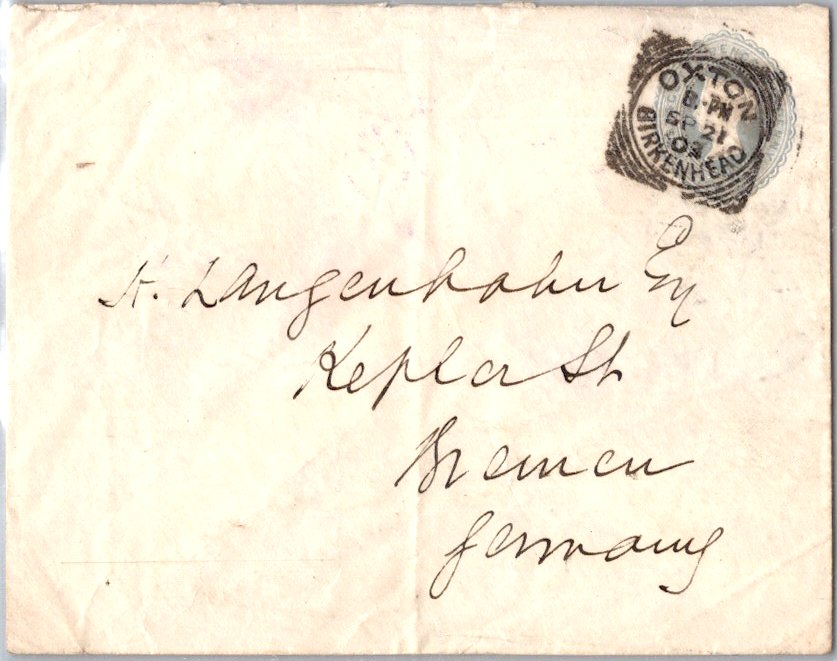 OXTON
8-PM
SP 21
03
BIRKENHEAD
H. Langenhahn Esq
Kepler St
Bremen
Germany